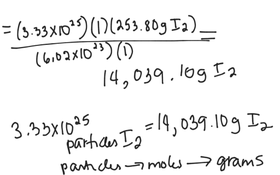 = (3.33x10²⁵)(1)(253.80g I₂)
(6.02x10²³)(1)
14,039.10g I₂
3.33x10²⁵ particles I₂ = 14,039.10g I₂
particles → moles → grams